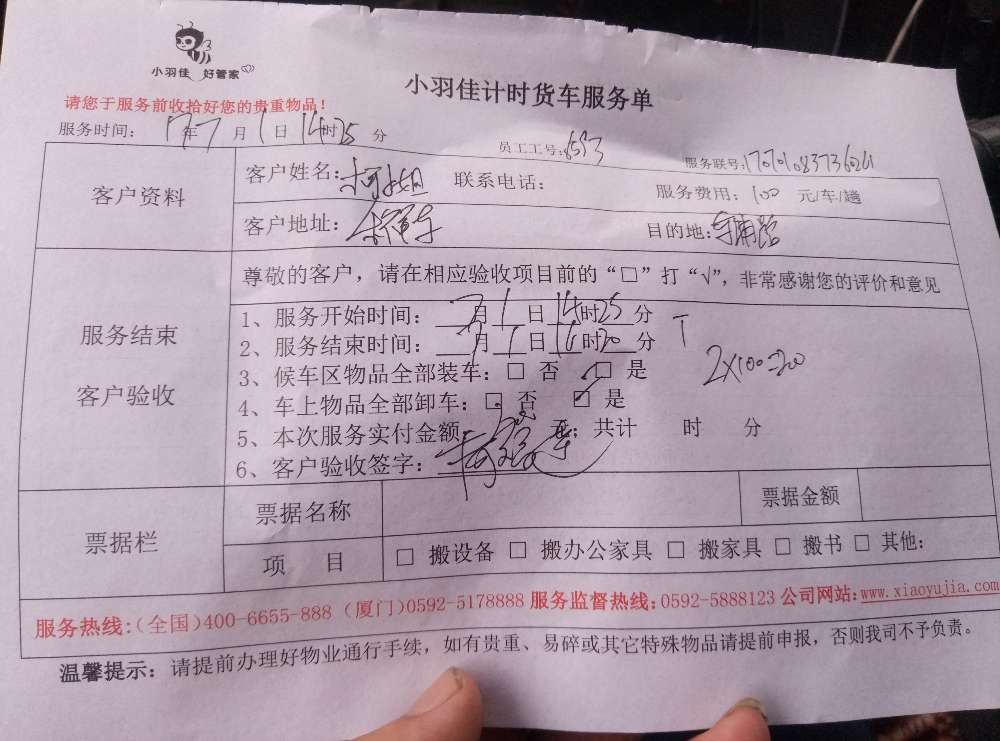 小羽佳 好管家
小羽佳计时货车服务单
请您于服务前收拾好您的贵重物品!
服务时间: 17年7月1日14时25分
员工工号:
服务联号:
客户资料
客户姓名: 联系电话: 服务费用: 100 元/车/趟
客户地址: 目的地:
服务结束
客户验收
尊敬的客户,请在相应验收项目前的“□”打“√”,非常感谢您的评价和意见
1、服务开始时间: 7月1日14时25分
2、服务结束时间: 7月1日16时20分
3、候车区物品全部装车:□ 否 □ 是
4、车上物品全部卸车:□ 否 □ 是
2×100=200
5、本次服务实付金额 元; 共计 时 分
6、客户验收签字:
票据栏
票据名称 票据金额
项 目 □ 搬设备 □ 搬办公家具 □ 搬家具 □ 搬书 □ 其他:
服务热线:(全国)400-6655-888 (厦门)0592-5178888 服务监督热线:0592-5888123 公司网站:www.xiaoyujia.com
温馨提示: 请提前办理好物业通行手续,如有贵重、易碎或其它特殊物品请提前申报,否则我司不予负责。